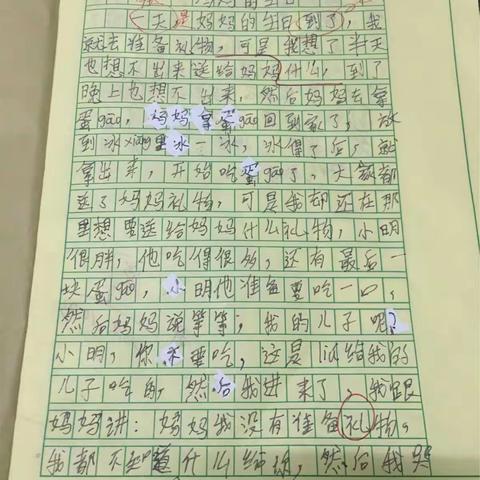 妈妈的生日
一天是妈妈的生日到了，我
就去准备礼物，可是我想了半天
也想不出来送给妈妈什么，到了
晚上也想不出来，然后妈妈去拿
蛋gāo，妈妈拿蛋gāo回到家了，冰
到冰xiāng里冰一冰，冰得了后，就
拿出来，开始吃蛋gāo了，大家都
送了妈妈礼物，可是我却还在那
里想要送给妈妈什么礼物，小明
很胖，他吃得很多，还有最后一
块蛋gāo，小明他准备要吃一口，
然后妈妈说等等，我的儿子呢？
小明，你不要吃，这是liú给我的
儿子吃的，然后我进来了，我跟
妈妈讲：妈妈我没有准备礼物。
我都不知道什么，然后我哭